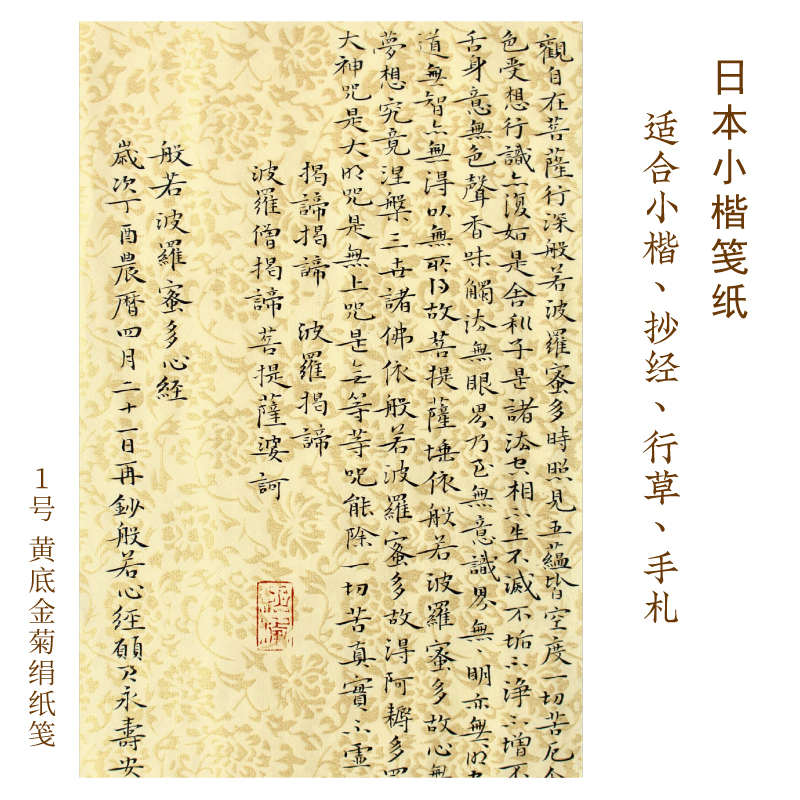 日本小楷笺纸
适合小楷、抄经、行草、手札
觀自在菩薩行深般若波羅蜜多時照見五蘊皆空度一切苦厄
色受想行識亦復如是舍利子是諸法空相不生不滅不垢不淨不增不
舌身意無色聲香味觸法無眼界乃至無意識界無、明亦無、明
道無智亦無得以無所得故菩提薩埵依般若波羅蜜多故心無
夢想究竟涅槃三世諸佛依般若波羅蜜多故得阿耨多
大神呪是大明呪是無上呪是无等等呪能除一切苦真實不虛
揭諦揭諦 波羅揭諦
波羅僧揭諦 菩提薩婆訶
般若波羅蜜多心經
歲次丁酉農曆四月二十一日再鈔般若心經願 永壽安
1号 黄底金菊绢纸笺